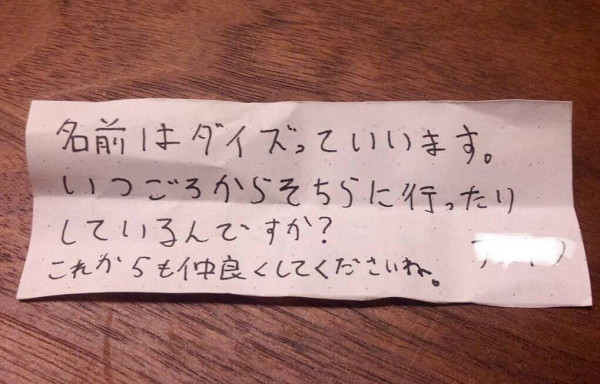 名前はダイズっていいます。
いつごろからそちらに行ったり
しているんですか?
これからも仲良くしてくださいね。